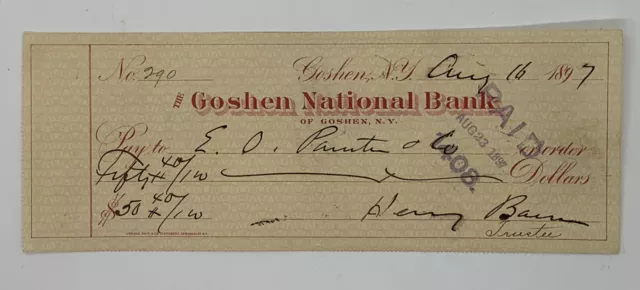 No. 290 Goshen, N.Y. Aug 16 1897
THE Goshen National Bank
OF GOSHEN, N.Y.
Pay to E. O. & Co or order
Fifty 40/100 Dollars
$50 40/100 Henry
Trustee
PAID
AUG 23 1897
408.